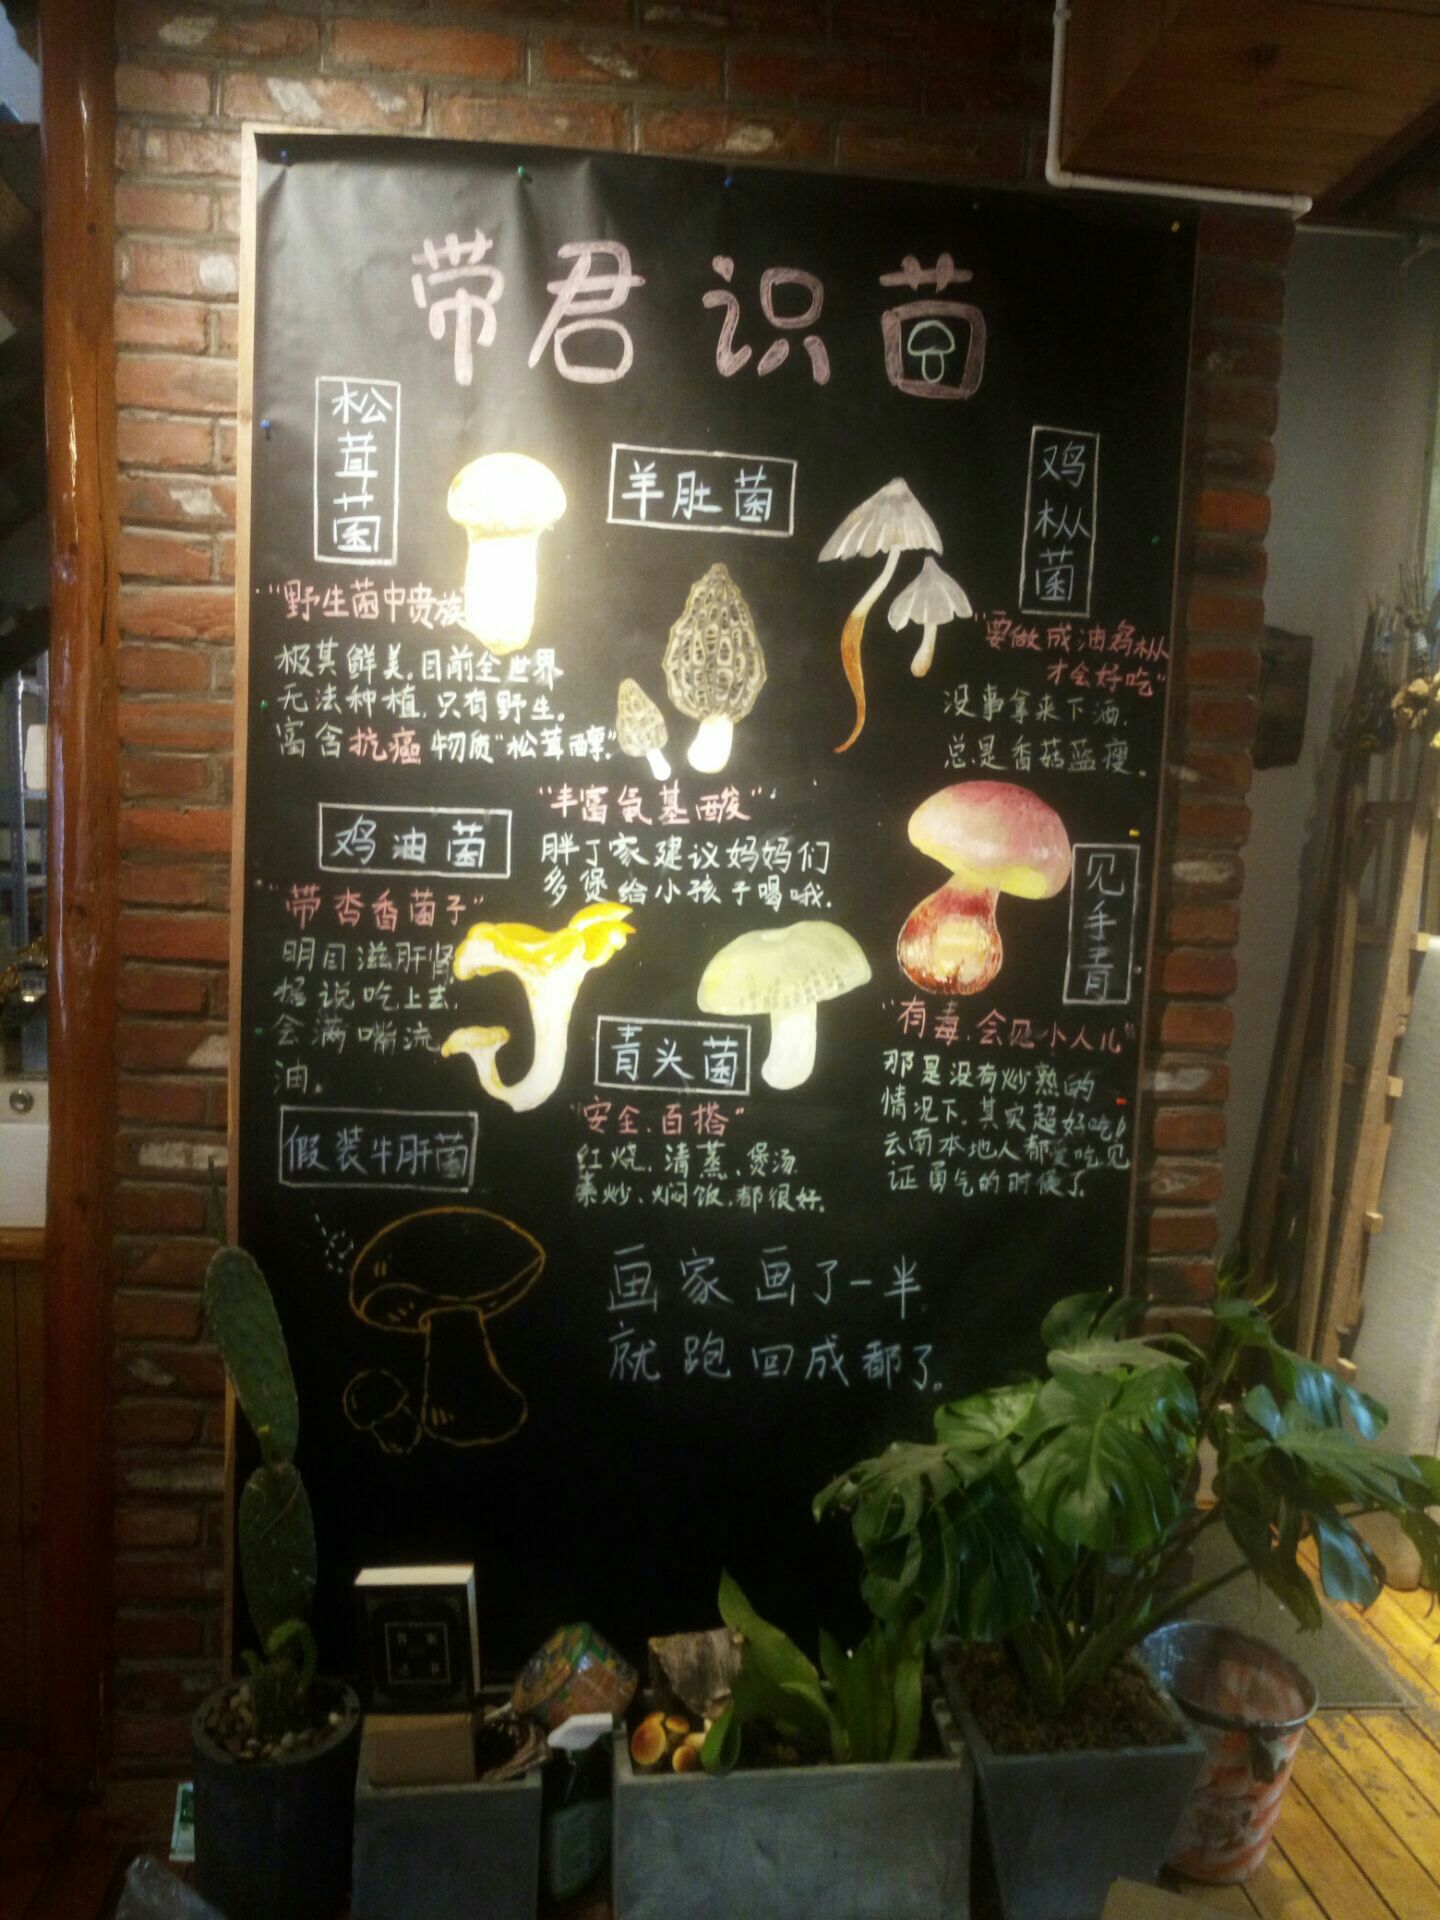 带君识菌
松茸菌
"野生菌中贵族"
极其鲜美，目前全世界
无法种植，只有野生。
富含抗癌物质"松茸醇"。
羊肚菌
"丰富氨基酸"
胖丁家建议妈妈们
多煲给小孩子喝哦.
鸡枞菌
"要做成油鸡枞
才会好吃"
没事拿来下酒，
总是香菇蓝瘦。
鸡油菌
"带杏香菌子"
明目滋肝肾
据说吃上去，
会满嘴流
油。
青头菌
"安全、百搭"
红烧、清蒸、煲汤、
素炒、焖饭，都很好。
见手青
"有毒，会见小人儿"
那是没有炒熟的
情况下，其实超好吃！
云南本地人都爱吃，见
证勇气的时候了。
假装牛肝菌
画家画了一半
就跑回成都了。